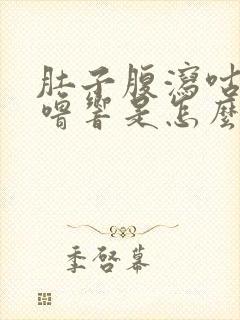 肚子腹瀉咕
嚕響是怎麼
季啓幕